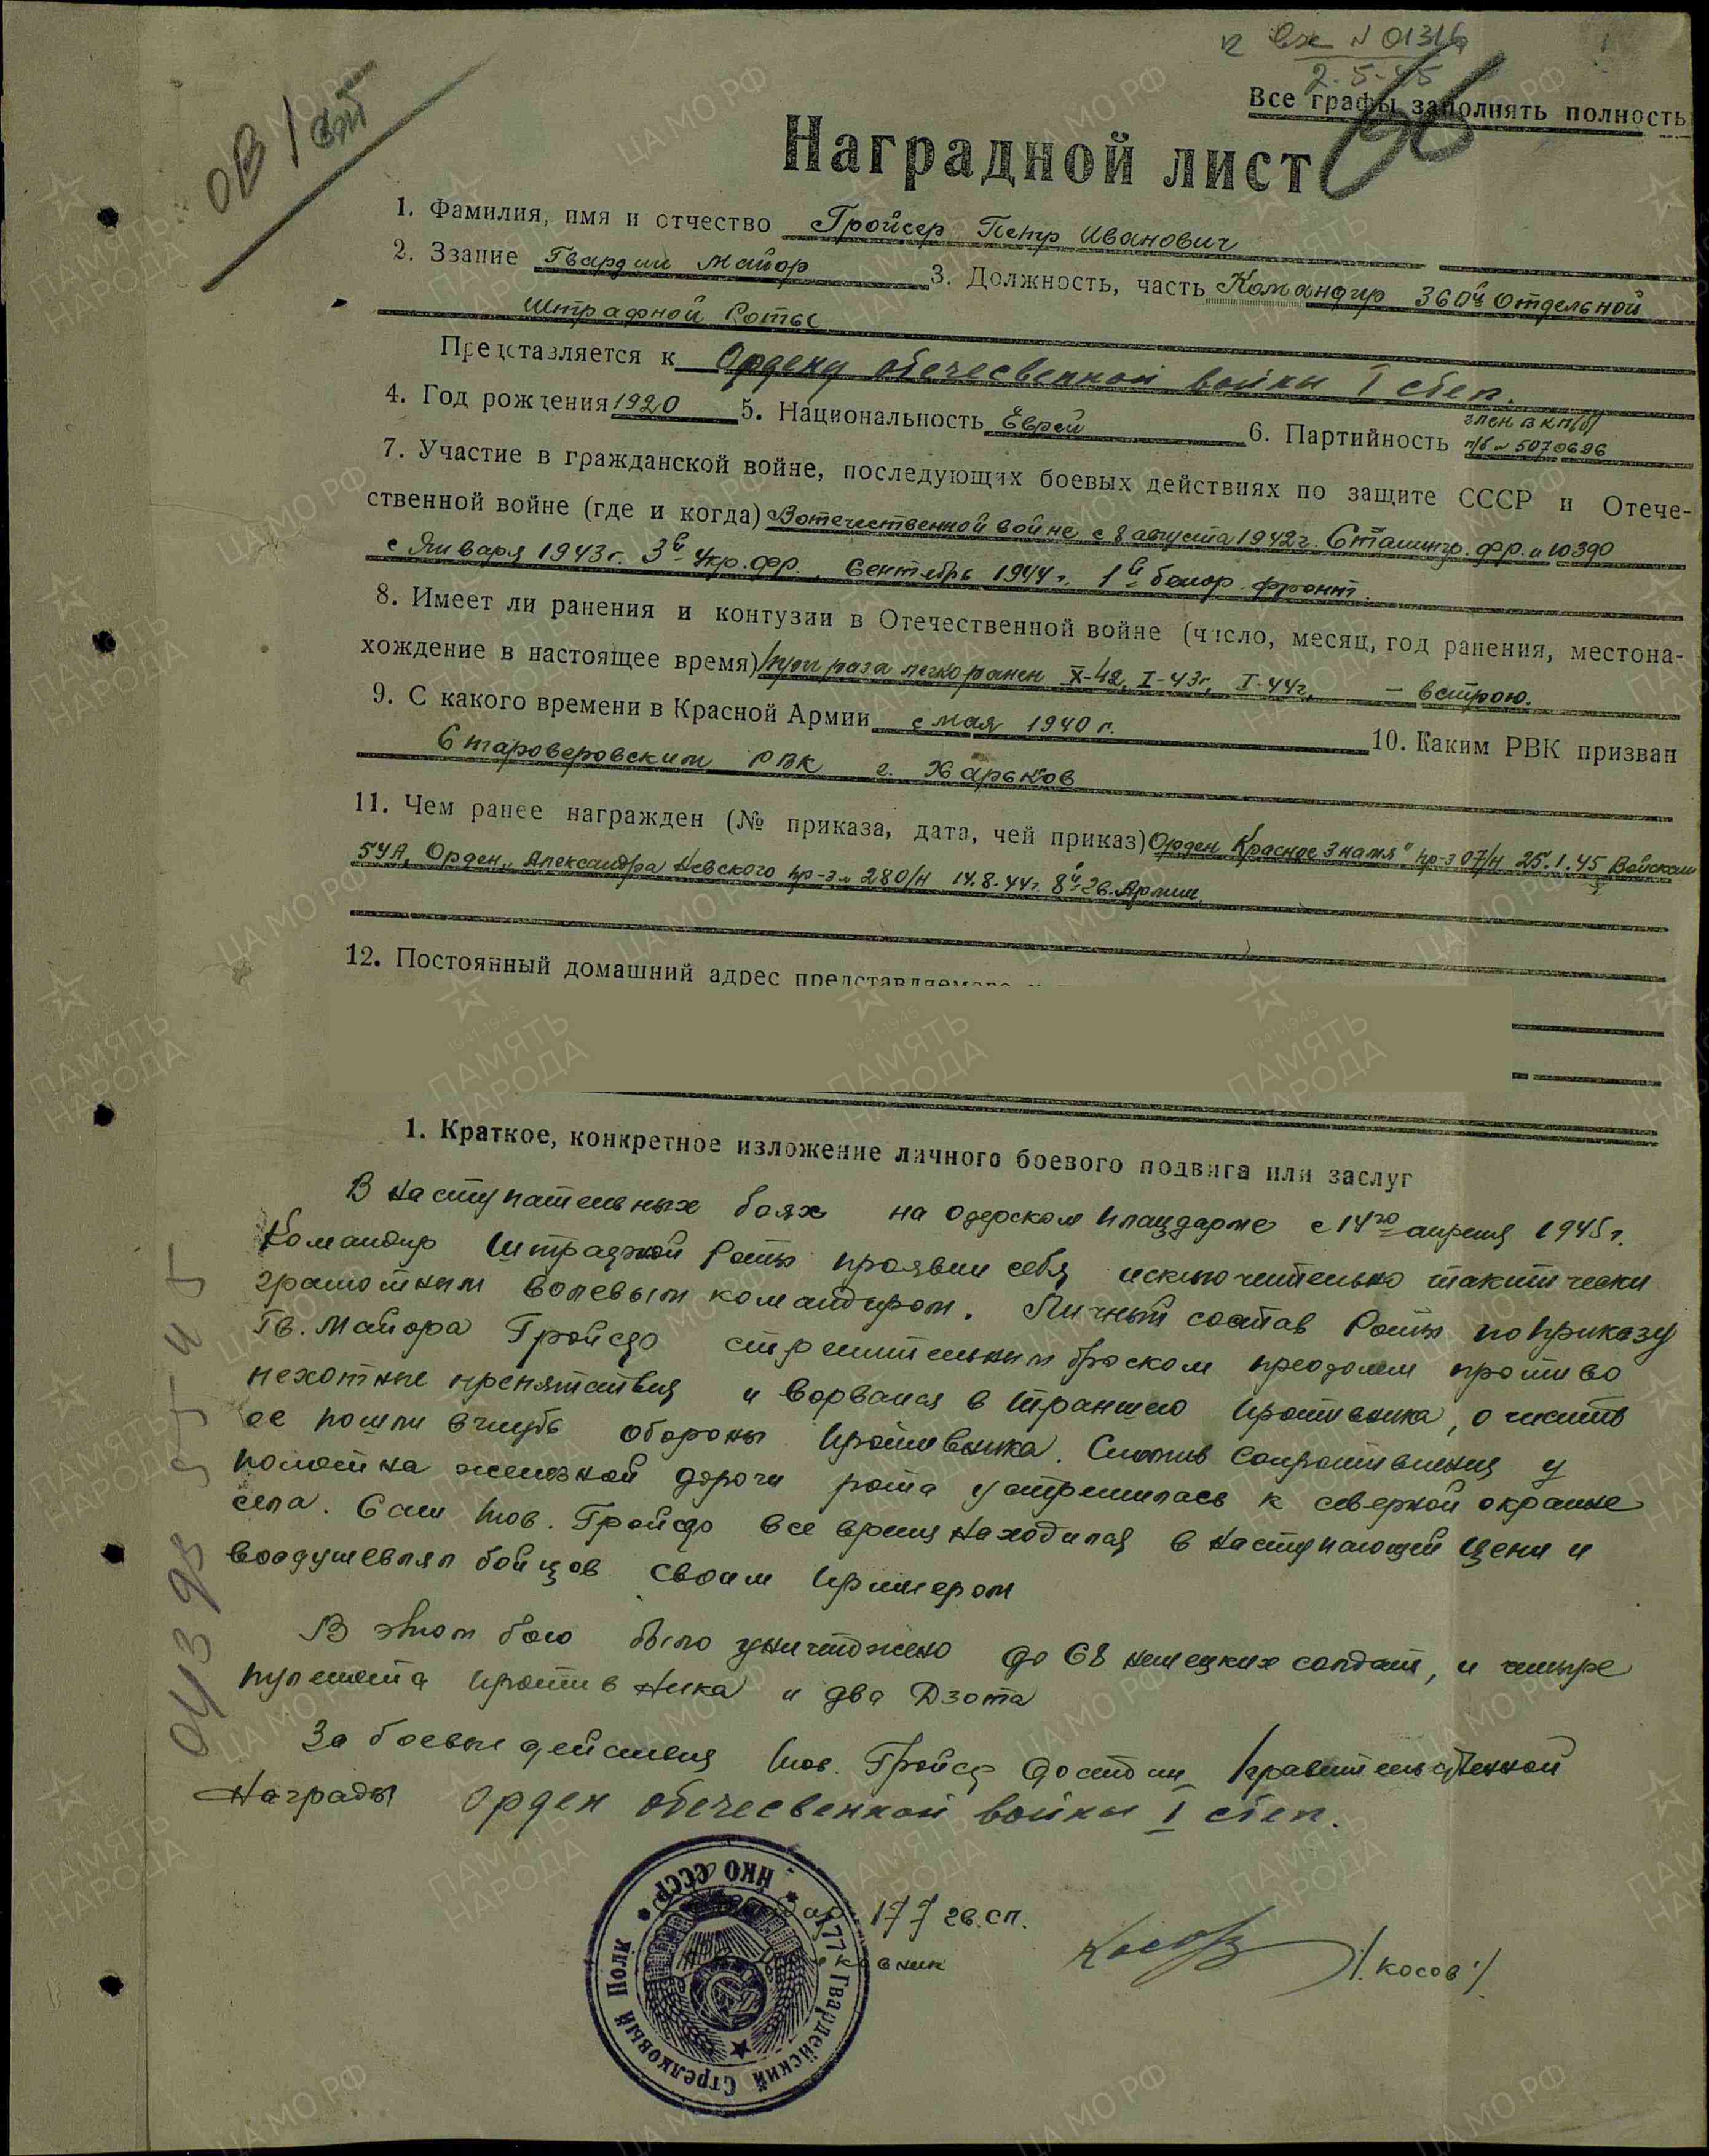 Вх N 01316
2-5-45
ОВ/ I ст
Все графы заполнять полность
Наградной лист
1. Фамилия, имя и отчество Гройсер Петр Иванович
2. Звание Гвардии Майор 3. Должность, часть Командир 360й Отдельной
Штрафной Роты
Представляется к Ордену отечесвенной войны I степ.
4. Год рождения 1920 5. Национальность Еврей 6. Партийность член ВКП(б)
п/б № 5070696
7. Участие в гражданской войне, последующих боевых действиях по защите СССР и Отече-
ственной войне (где и когда) В отечественной войне с 8 августа 1942 г. Сталингр. фр. и ЮЗФ
с Января 1943 г. 3й Укр. фр., Сентябрь 1944 г. 1й белор. фронт.
8. Имеет ли ранения и контузии в Отечественной войне (число, месяц, год ранения, местона-
хождение в настоящее время) три раза легко ранен X-42, I-43г, I-44г, – в строю.
9. С какого времени в Красной Армии с мая 1940 г. 10. Каким РВК призван
Староверовским РВК г. Харьков
11. Чем ранее награжден (№ приказа, дата, чей приказ) Орден Красное Знамя" пр-з 07/н 25.1.45 Войскам
5УА, Орден „Александра Невского пр-з № 280/н 14.8.44г. 8й Гв. Армии
12. Постоянный домашний адрес представляемого
1. Краткое, конкретное изложение личного боевого подвига или заслуг
В наступательных боях на одерском плацдарме с 14го апреля 1945 г.
Командир Штрафной Роты проявил себя исключительно тактически
грамотным волевым командиром. Личный состав Роты по приказу
Гв. Майора Гройсер стремительным броском преодолел противо
пехотные препятствия и ворвался в траншею противника, очистив
ее пошли вглубь обороны противника. Сломив сопротивления у
полотна железной дороги рота устремилась к северной окраине
села. Сам тов. Гройсер все время находился в наступающей цепи и
воодушевлял бойцов своим примером
В этом бою было уничтожено до 68 немецких солдат, и четыре
пулемета противника и два Дзота
За боевые действия тов. Гройсер достоин правительственной
Награды Орден отечесвенной войны I степ.
177 гв. сп.
Косов /Косов/
НКО СССР
177й Гвардейский Стрелковый Полк
ПАМЯТЬ НАРОДА
1941-1945
ЦА МО РФ